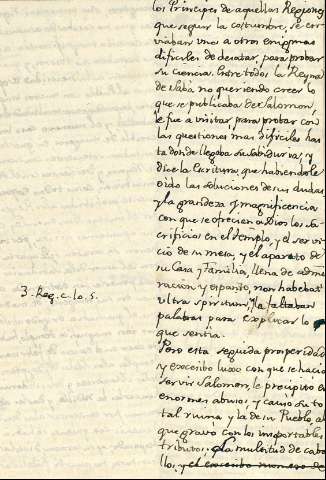 los Principes de aquellas Regiones
que seguir la costumbre, se en
viaban unos a otros enigmas
dificiles de desatar, para probar
su ciencia. Entre todos la Reyna
de Saba no queriendo creer lo
que se publicaba de Salomon,
le fue a visitar para probar con
las questiones mas dificiles has
ta donde llegaba su Sabiduria, y
dice la Escritura, que habiendole
oido las soluciones de sus dudas
y la grandeza y magnificencia
con que se ofrecian a Dios los sa
crificios en el templo, y el servi
cio de su mesa, y el aparato de
su Casa y Familia, llena de admi
racion y espanto, non habebat
3. Reg. c. 10. 5.
ultra spiritum, la faltaban
palabras para explicar lo
que sentia.
Pero esta seguida prosperidad
y excesibo luxo con que se hacia
servir Salomon, le precipitó en
enormes abusos y causo su to
tal ruina y la de su Pueblo, al
que gravó con los insoportables
tributos. La multitud de caba
llos, y el excesibo numero de